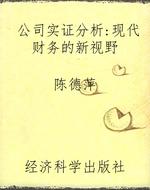 公司实证分析:现代
财务的新视野
陈德萍
经济科学出版社